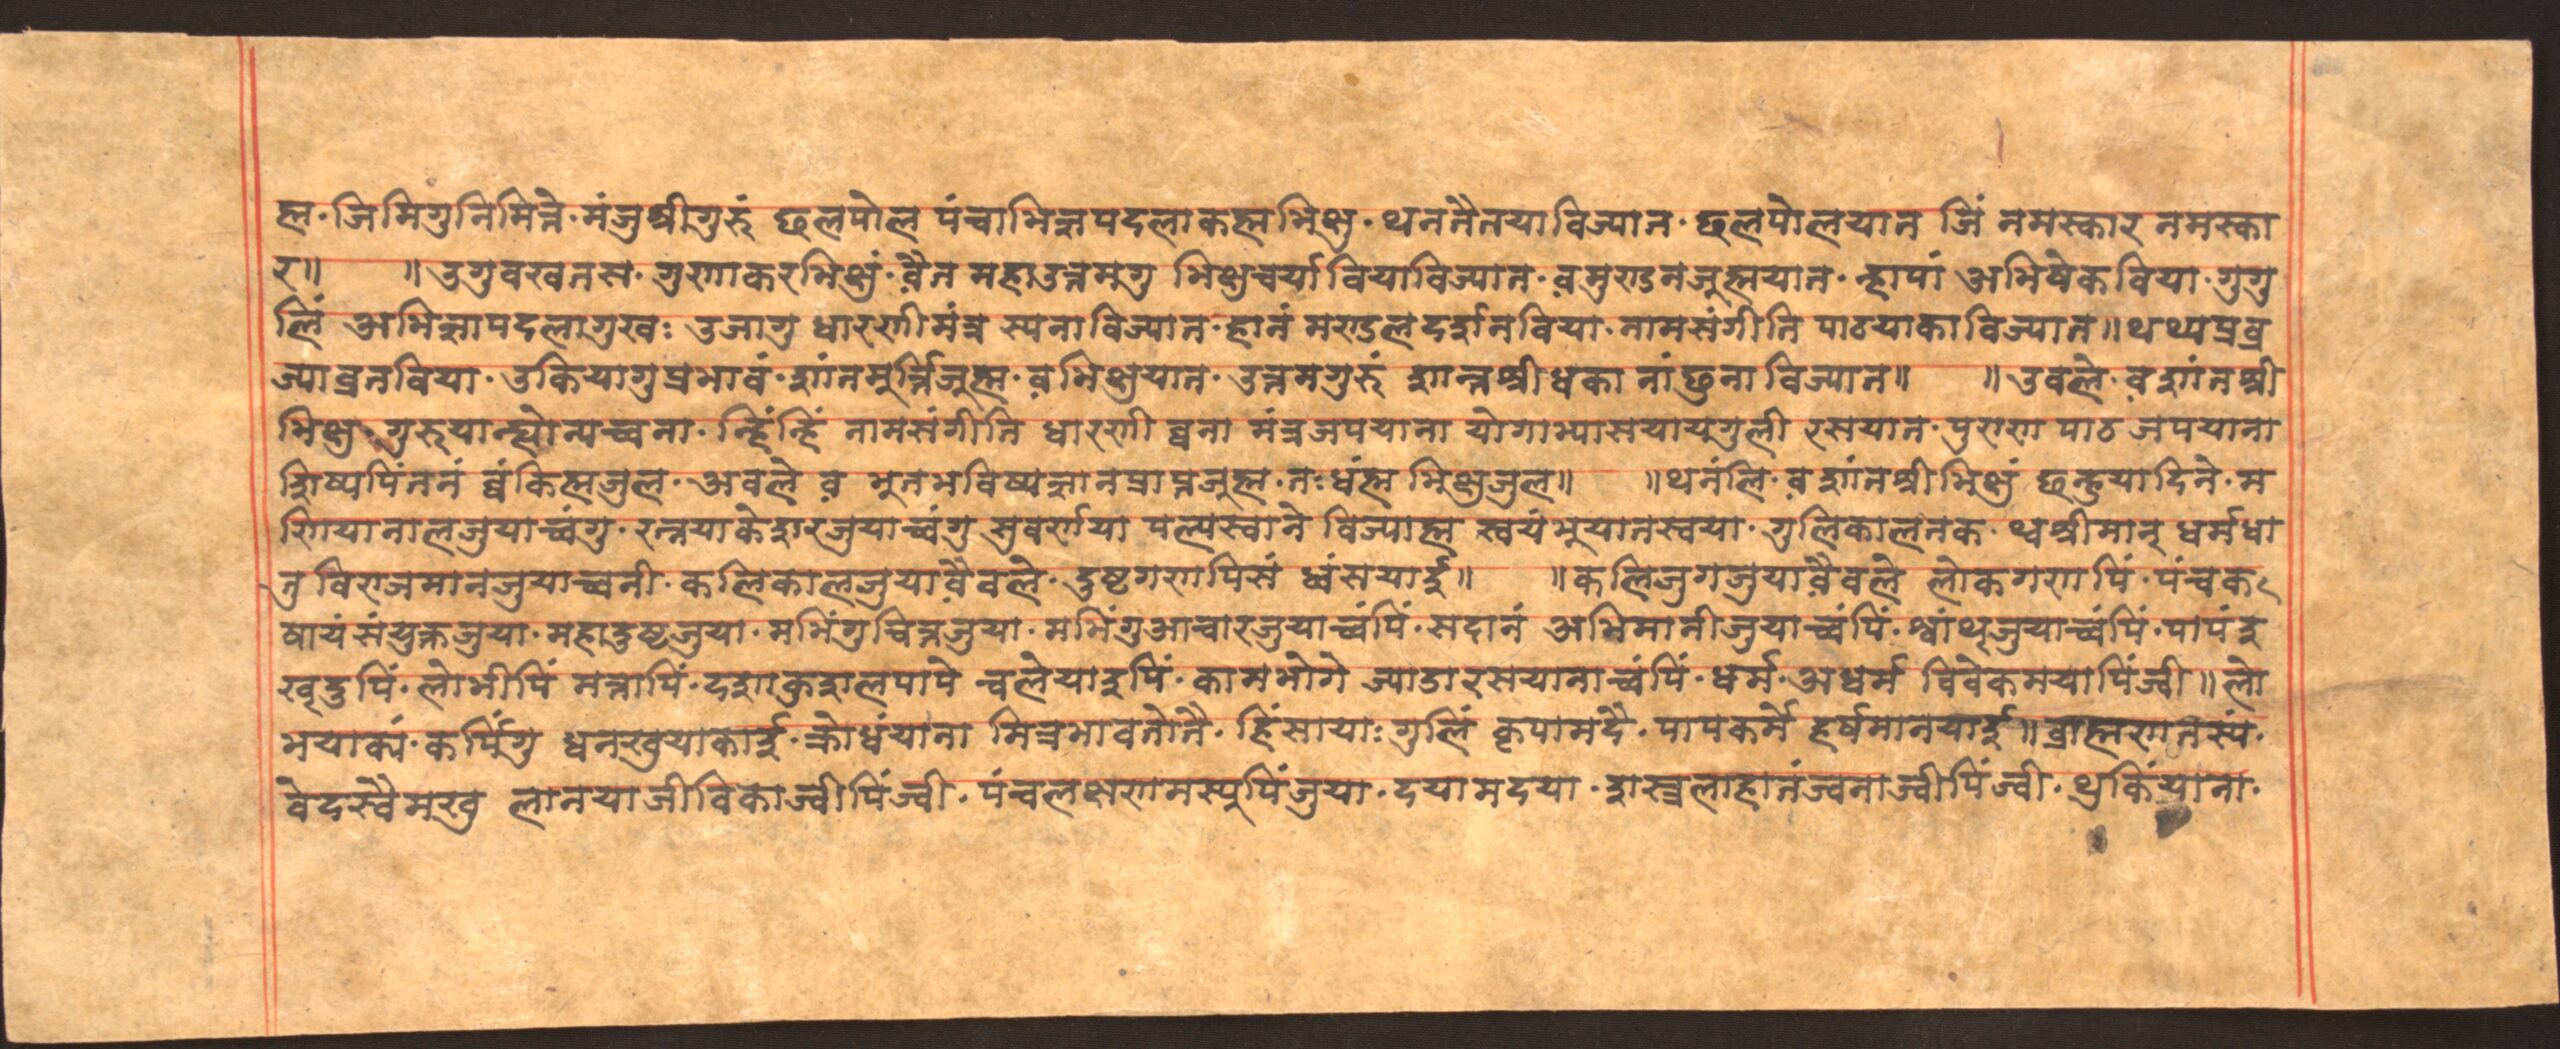 ह्म· जिमिगुनिमित्तें· मंजुश्रीगुरुं छलपोल पंचाभिज्ञपदलाकह्मभिक्षु· थनतैतयाविज्यात· छलपोलयात जिं नमस्कार नमस्का
र॥ ॥उगुवखतस· गुणाकरभिक्षुं· व़ैत महाउत्तमगु भिक्षुचर्या वियाविज्यात· व़मुण्डनजुह्मयात· न्हापां अभिषेक विया· गुगु
लिं अभिज्ञापदलागुखः उजागु धारणीमंत्र स्यनाविज्यात· हानं मण्डलदर्शनविया· नामसंगीति पाठयाकाविज्यात॥ थथ्यप्रव्र
ज्याव्रतविया· उकियागुप्रभावं· शांतमुर्त्तिजुह्म· व़भिक्षुयात· उत्तमगुरुं शान्तश्रीधका नां छुनाविज्यात॥ ॥उवले· व़शांतश्री
भिक्षु· गुरुयान्ह्योन्यच्वना· न्हिंन्हिं नामसंगीति धारणी व्वना मंत्रजपयाना योगाभ्यासयायगुली रसयात· पुराण पाठ जपयाना
शिष्यपिंतनं व्वंकिह्मजुल· अवले व़ भुतभविष्यज्ञानप्राप्तजुह्म· तःधंह्म भिक्षुजुल॥ ॥थनंलि· व़शांतश्रीभिक्षुं छन्हुयादिने· म
णियानालजुयाच्वंगु· रत्नयाकेशरजुयाच्वंगु सुवर्णया पल्यस्वाने विज्याह्म स्वयंभुयातस्वया· गुलिकालतक थ्वश्रीमान् धर्मधा
तु विराजमानजुयाच्वनी· कलिकालजुयाव़ैवले· दुष्टगणपिसं ध्वंसयाई॥ ॥कलिजुगजुयाव़ैवले लोकगणपिं· पंचक
षायं संयुक्तजुया· महादुष्टजुया· मभिंगुचित्तजुया· मभिंगुआचारजुयाच्वंपिं· सदानं अभिमानीजुयाच्वंपिं· थ्वांथृजुयाच्वंपिं· पापंदु
खृदुपिं· लोभीपिं मत्तापिं· दशाकुशलपापे च्वलेयाइपिं· कामभोगे ज्याडारसयानाच्वंपिं· धर्म· अधर्म विवेकमयापिंज्वी॥ लो
भयाक्यं· कपिंगु धनखुयाकाई· क्रोधंयाना मित्रभावतोतै· हिंसायाः गुलिं कृपामदै· पापकर्मे हर्षमानयाई॥ ब्राह्मणतस्यं·
वेदस्वैमखु लानयाजीविकाज्वीपिंज्वी· पंचलक्षणमस्युपिंजुया· दयामदया· शस्त्रलाहानंज्वनाज्वीपिंज्वी· थुकिंयाना·